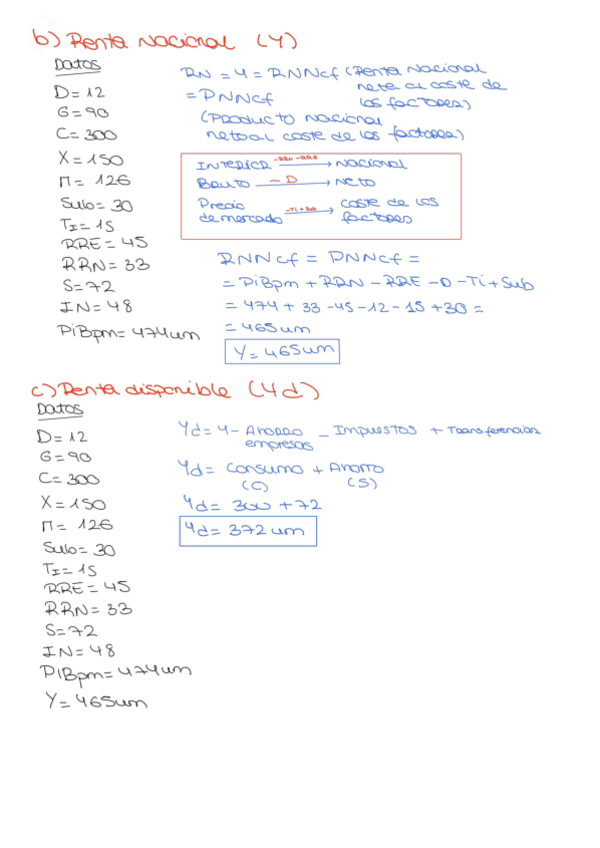 b) Renta Nacional (Y)
Datos
D = 12
G = 90
C = 300
X = 150
M = 126
Sub = 30
Ti = 15
RRE = 45
RRN = 33
S = 72
IN = 48
PiBpm = 474um
RN = Y = RNNcf (Renta Nacional
neta al coste de
los factores)
= PNNcf
(Producto Nacional
neto al coste de los factores)
Interior -RRN -RRE → Nacional
Bruto - D → Neto
Precio de mercado -Ti + Sub → coste de los factores
RNNcf = PNNcf =
= PiBpm + RRN - RRE - D - Ti + Sub
= 474 + 33 - 45 - 12 - 15 + 30 =
= 465um
Y = 465um
c) Renta disponible (Yd)
Datos
D = 12
G = 90
C = 300
X = 150
M = 126
Sub = 30
Ti = 15
RRE = 45
RRN = 33
S = 72
IN = 48
PiBpm = 474um
Y = 465um
Yd = Y - Ahorro empresas - Impuestos + Transferencias
Yd = Consumo + Ahorro
(C) (S)
Yd = 300 + 72
Yd = 372 um